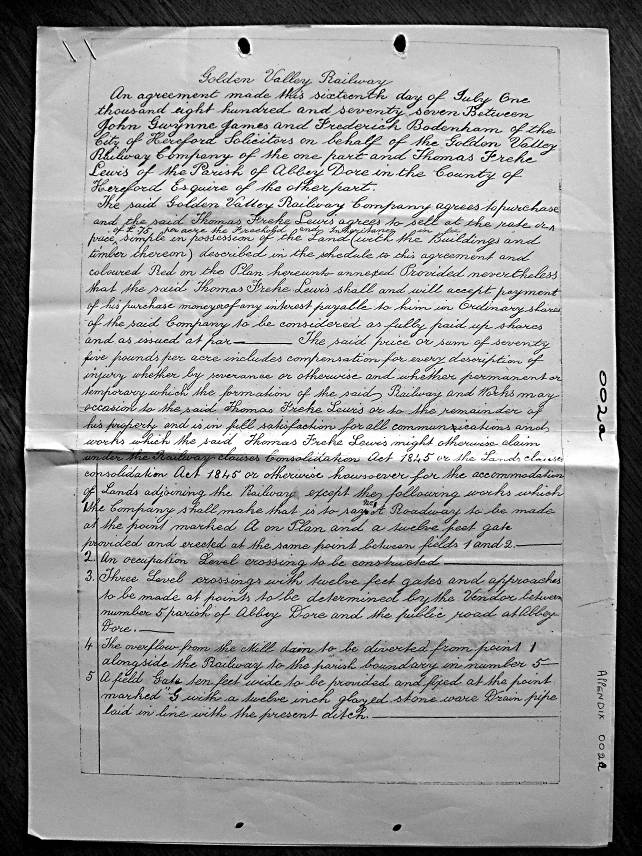 Golden Valley Railway
An agreement made this sixteenth day of July One
thousand eight hundred and seventy seven Between
John Gwynne James and Frederick Bodenham of the
City of Hereford Solicitors on behalf of the Golden Valley
Railway Company of the one part and Thomas Freke
Lewis of the Parish of Abbey Dore in the County of
Hereford Esquire of the other part.
The said Golden Valley Railway Company agrees to purchase
and the said Thomas Freke Lewis agrees to sell at the rate or
of £75 per acre the Freehold and Inheritance in fee
price simple in possession of the Land (with the Buildings and
timber thereon) described in the schedule to this agreement and
coloured Red on the Plan hereunto annexed Provided nevertheless
that the said Thomas Freke Lewis shall and will accept payment
of his purchase money or of any interest payable to him in Ordinary shares
of the said Company to be considered as fully paid up shares
and as issued at par — The said price or sum of seventy
five pounds per acre includes compensation for every description of
injury whether by severance or otherwise and whether permanent or
temporary which the formation of the said Railway and Works may
occasion to the said Thomas Freke Lewis or to the remainder of
his property and is in full satisfaction for all communications and
works which the said Thomas Freke Lewis might otherwise claim
under the Railway clauses Consolidation Act 1845 or the Lands clauses
consolidation Act 1845 or otherwise howsoever for the accommodation
of Lands adjoining the Railway except the following works which
the Company shall make that is to say Roadway to be made
at the point marked A on Plan and a twelve feet gate
provided and erected at the same point between fields 1 and 2. —
2. An occupation Level crossing to be constructed —
3. Three Level crossings with twelve feet gates and approaches
to be made at points to be determined by the Vendor between
number 5 parish of Abbey Dore and the public road at Abbey
Dore. —
4 The overflow from the Mill dam to be diverted from point 1
alongside the Railway to the parish boundary in number 5 —
5 A field Gate ten feet wide to be provided and fixed at the point
marked "G with a twelve inch glazed stone ware Drain pipe
laid in line with the present ditch. —
002a
APPENDIX 002a